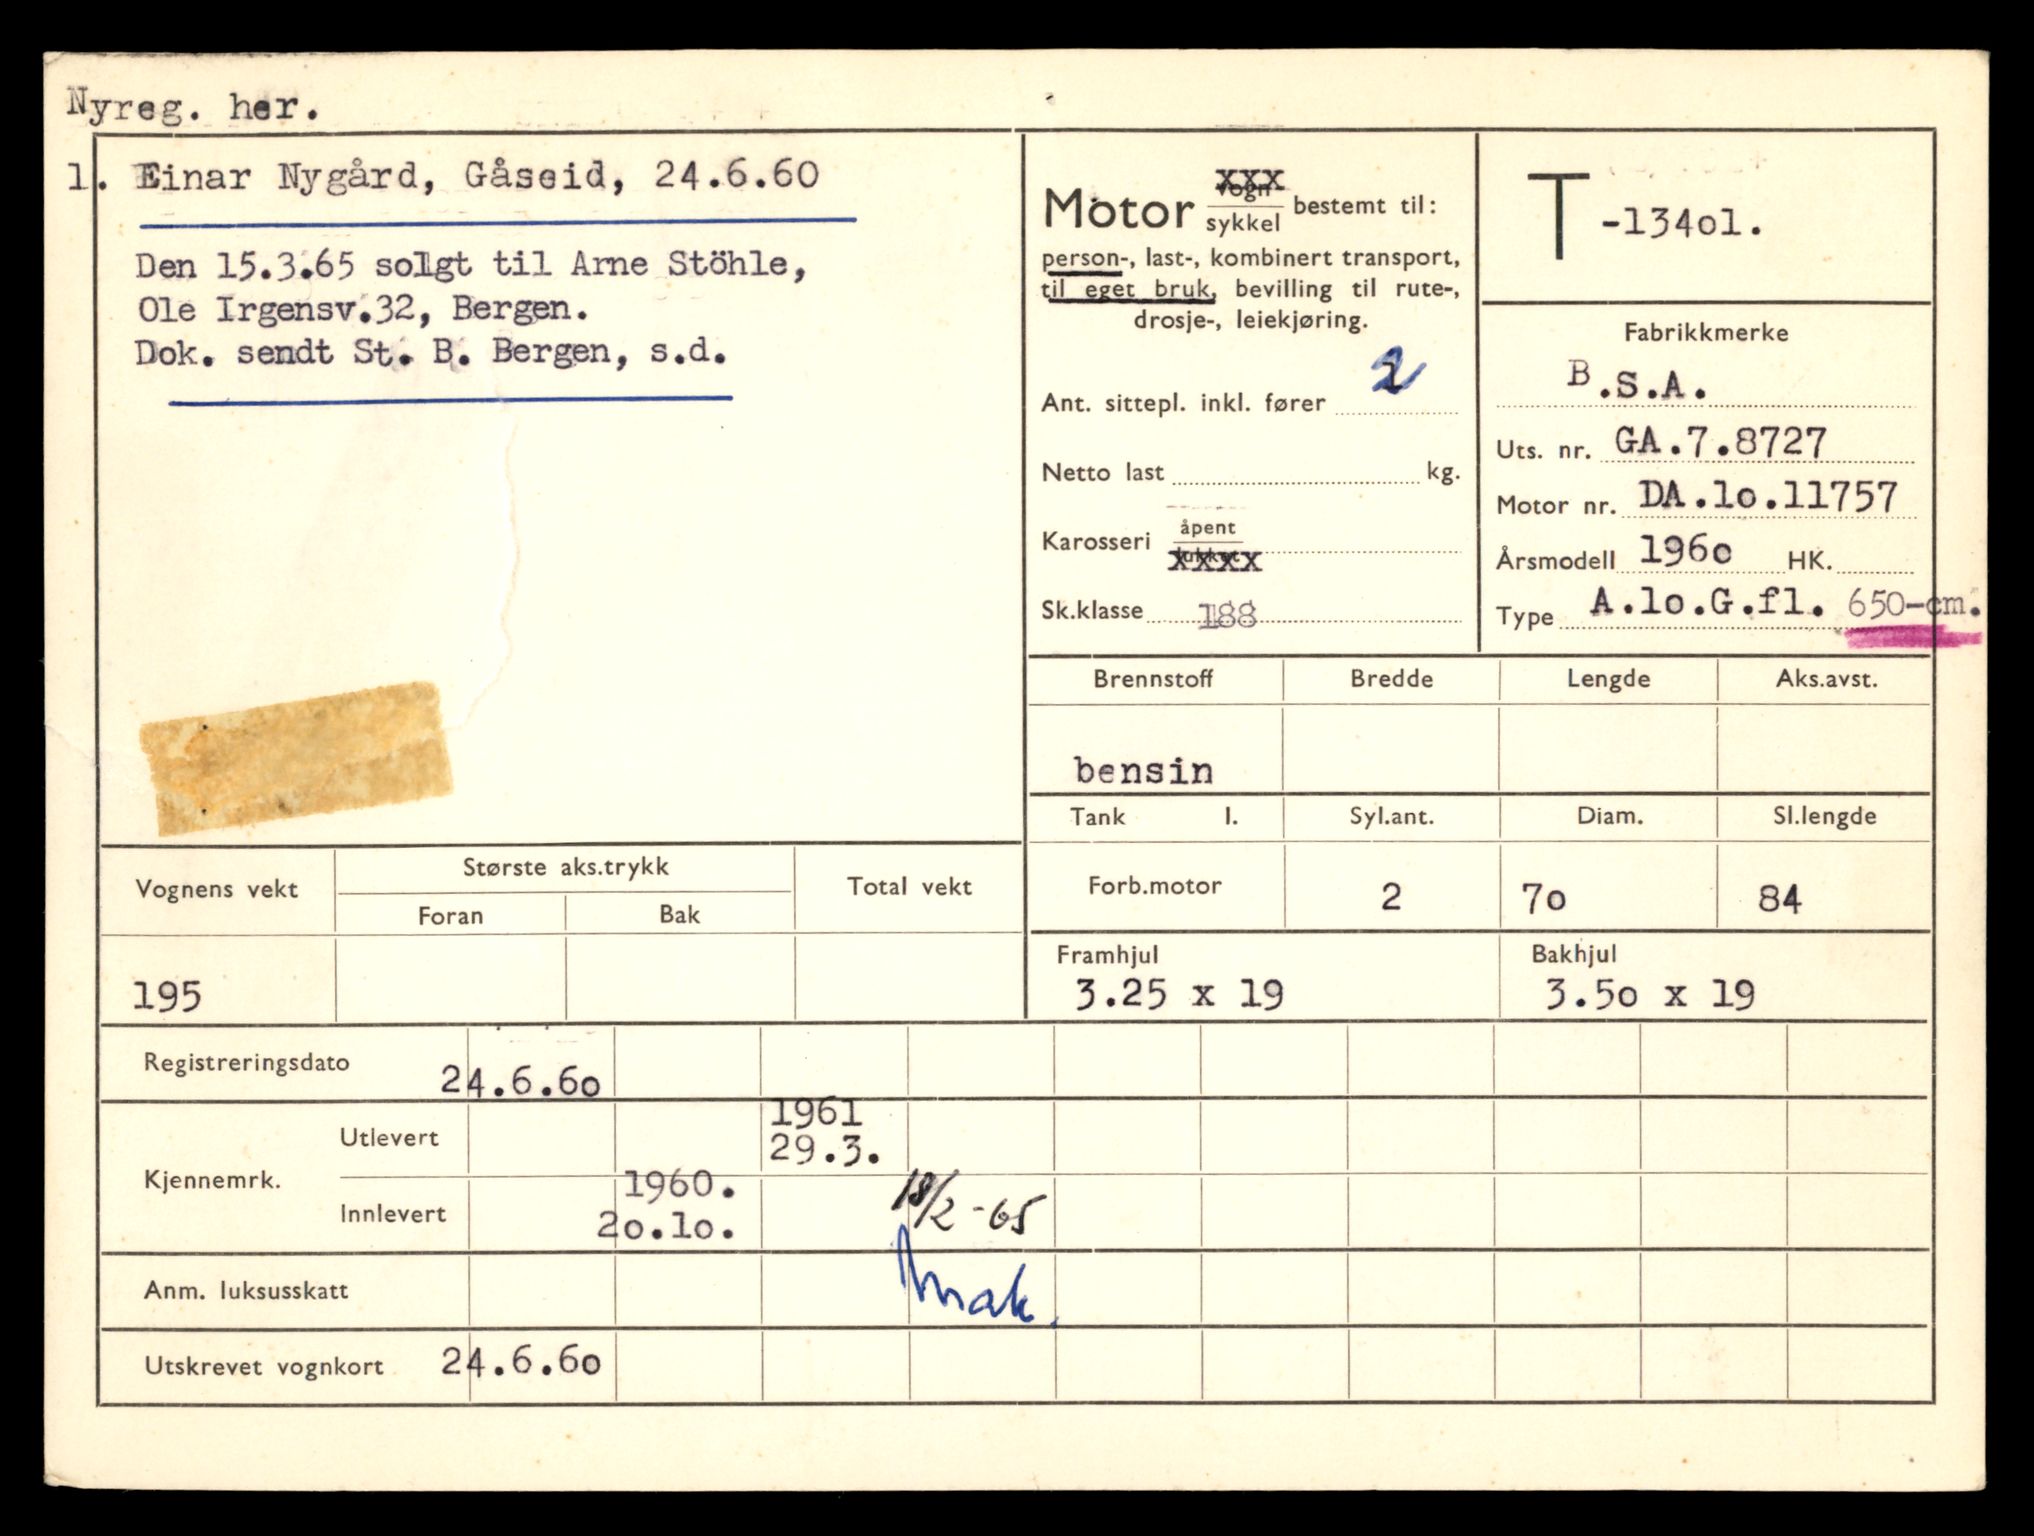 Nyreg. her.
1. Einar Nygård, Gåseid, 24.6.60
Den 15.3.65 solgt til Arne Stöhle,
Ole Irgensv.32, Bergen.
Dok. sendt St. B. Bergen, s.d.
Motor vogn xxx
sykkel bestemt til:
person-, last-, kombinert transport,
til eget bruk, bevilling til rute-,
drosje-, leiekjøring.
Ant. sittepl. inkl. fører 2
Netto last kg.
Karosseri åpent
lukket xxxx
Sk.klasse 188
T -134o1.
Fabrikkmerke
B.S.A.
Uts. nr. GA.7.8727
Motor nr. DA.1o.11757
Årsmodell 196o HK.
Type A.1o.G.fl. 650-cm.
Brennstoff Bredde Lengde Aks.avst.
bensin
Tank l. Syl.ant. Diam. Sl.lengde
Forb.motor 2 7o 84
Framhjul Bakhjul
3.25 x 19 3.5o x 19
Vognens vekt Største aks.trykk Total vekt
Foran Bak
195
Registreringsdato 24.6.6o
Kjennemrk.
Utlevert 1961
29.3.
Innlevert 1960.
2o.1o. 18/2-65
Anm. luksusskatt
Utskrevet vognkort 24.6.6o